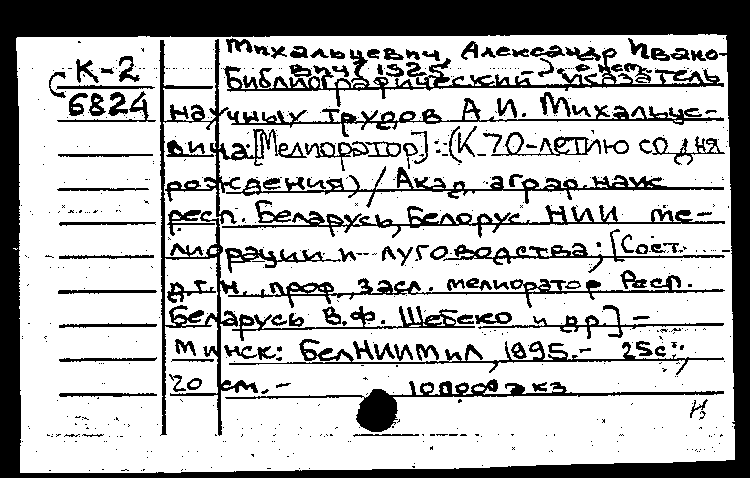 Михальцевич, Александр Ивано-
вич (1925
К-2 Библиографический указатель
6824 научных трудов А.И. Михальце-
вича: [Мелиоратор]: (К 70-летию со дня
рождения) / Акад. аграр. наук
респ. Беларусь, Белорус. НИИ ме-
лиорации и луговодства; [Сост.
д.т.н., проф., засл. мелиоратор Респ.
Беларусь В.Ф. Шебеко и др.] -
Минск: БелНИИМиЛ, 1995.- 25с.;
20 см.- экз